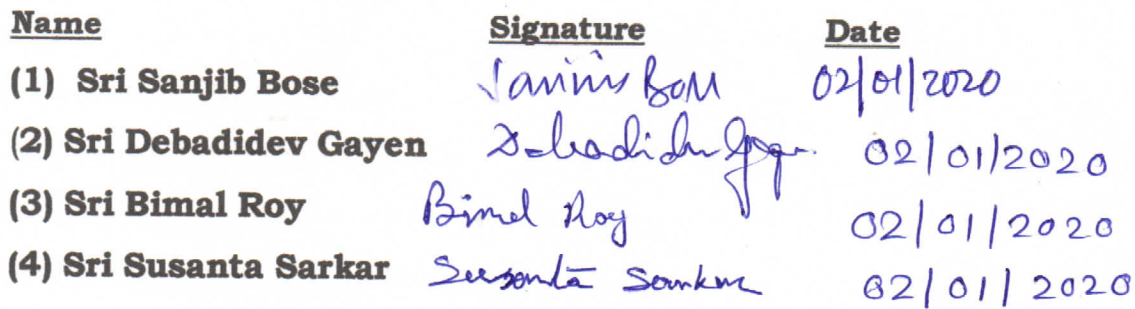 Name Signature Date
(1) Sri Sanjib Bose Sanjib Bose 02/01/2020
(2) Sri Debadidev Gayen Debadidev Gayen 02/01/2020
(3) Sri Bimal Roy Bimal Roy 02/01/2020
(4) Sri Susanta Sarkar Susanta Sarkar 02/01/2020